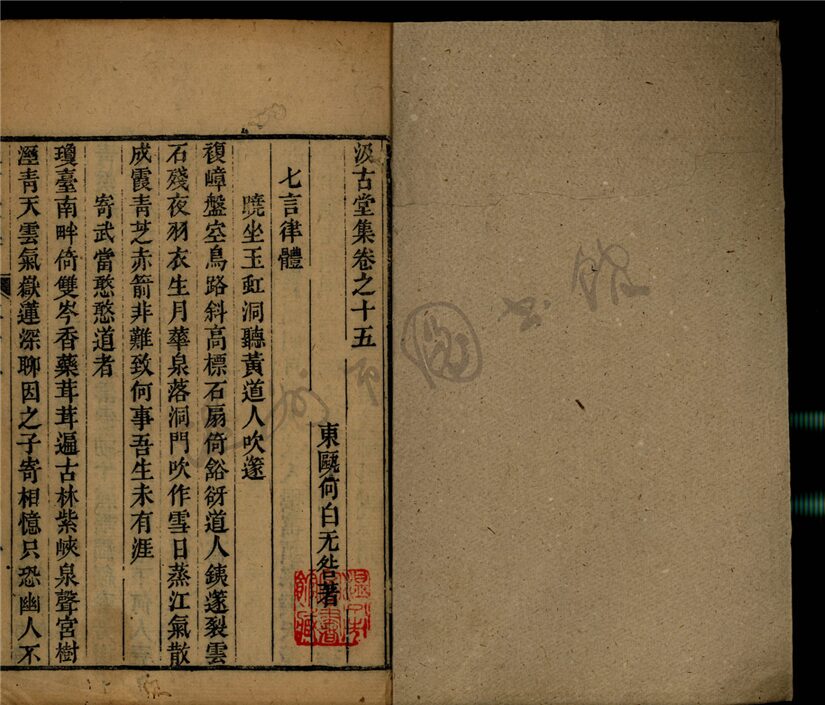 汲古堂集卷之十五
東甌何白无咎著
七言律體
曉坐玉虹洞聽黃道人吹篴
複嶂盤空鳥路斜高標石扇倚谽谺道人鐵篴裂雲
石殘夜羽衣生月華泉落洞門吹作雪日蒸江氣散
成霞青芝赤箭非難致何事吾生未有涯
寄武當憨憨道者
瓊臺南畔倚雙岑香藥茸茸遍古林紫峽泉聲宮樹
溼青天雲氣嶽蓮深聊因之子寄相憶只恐幽人不